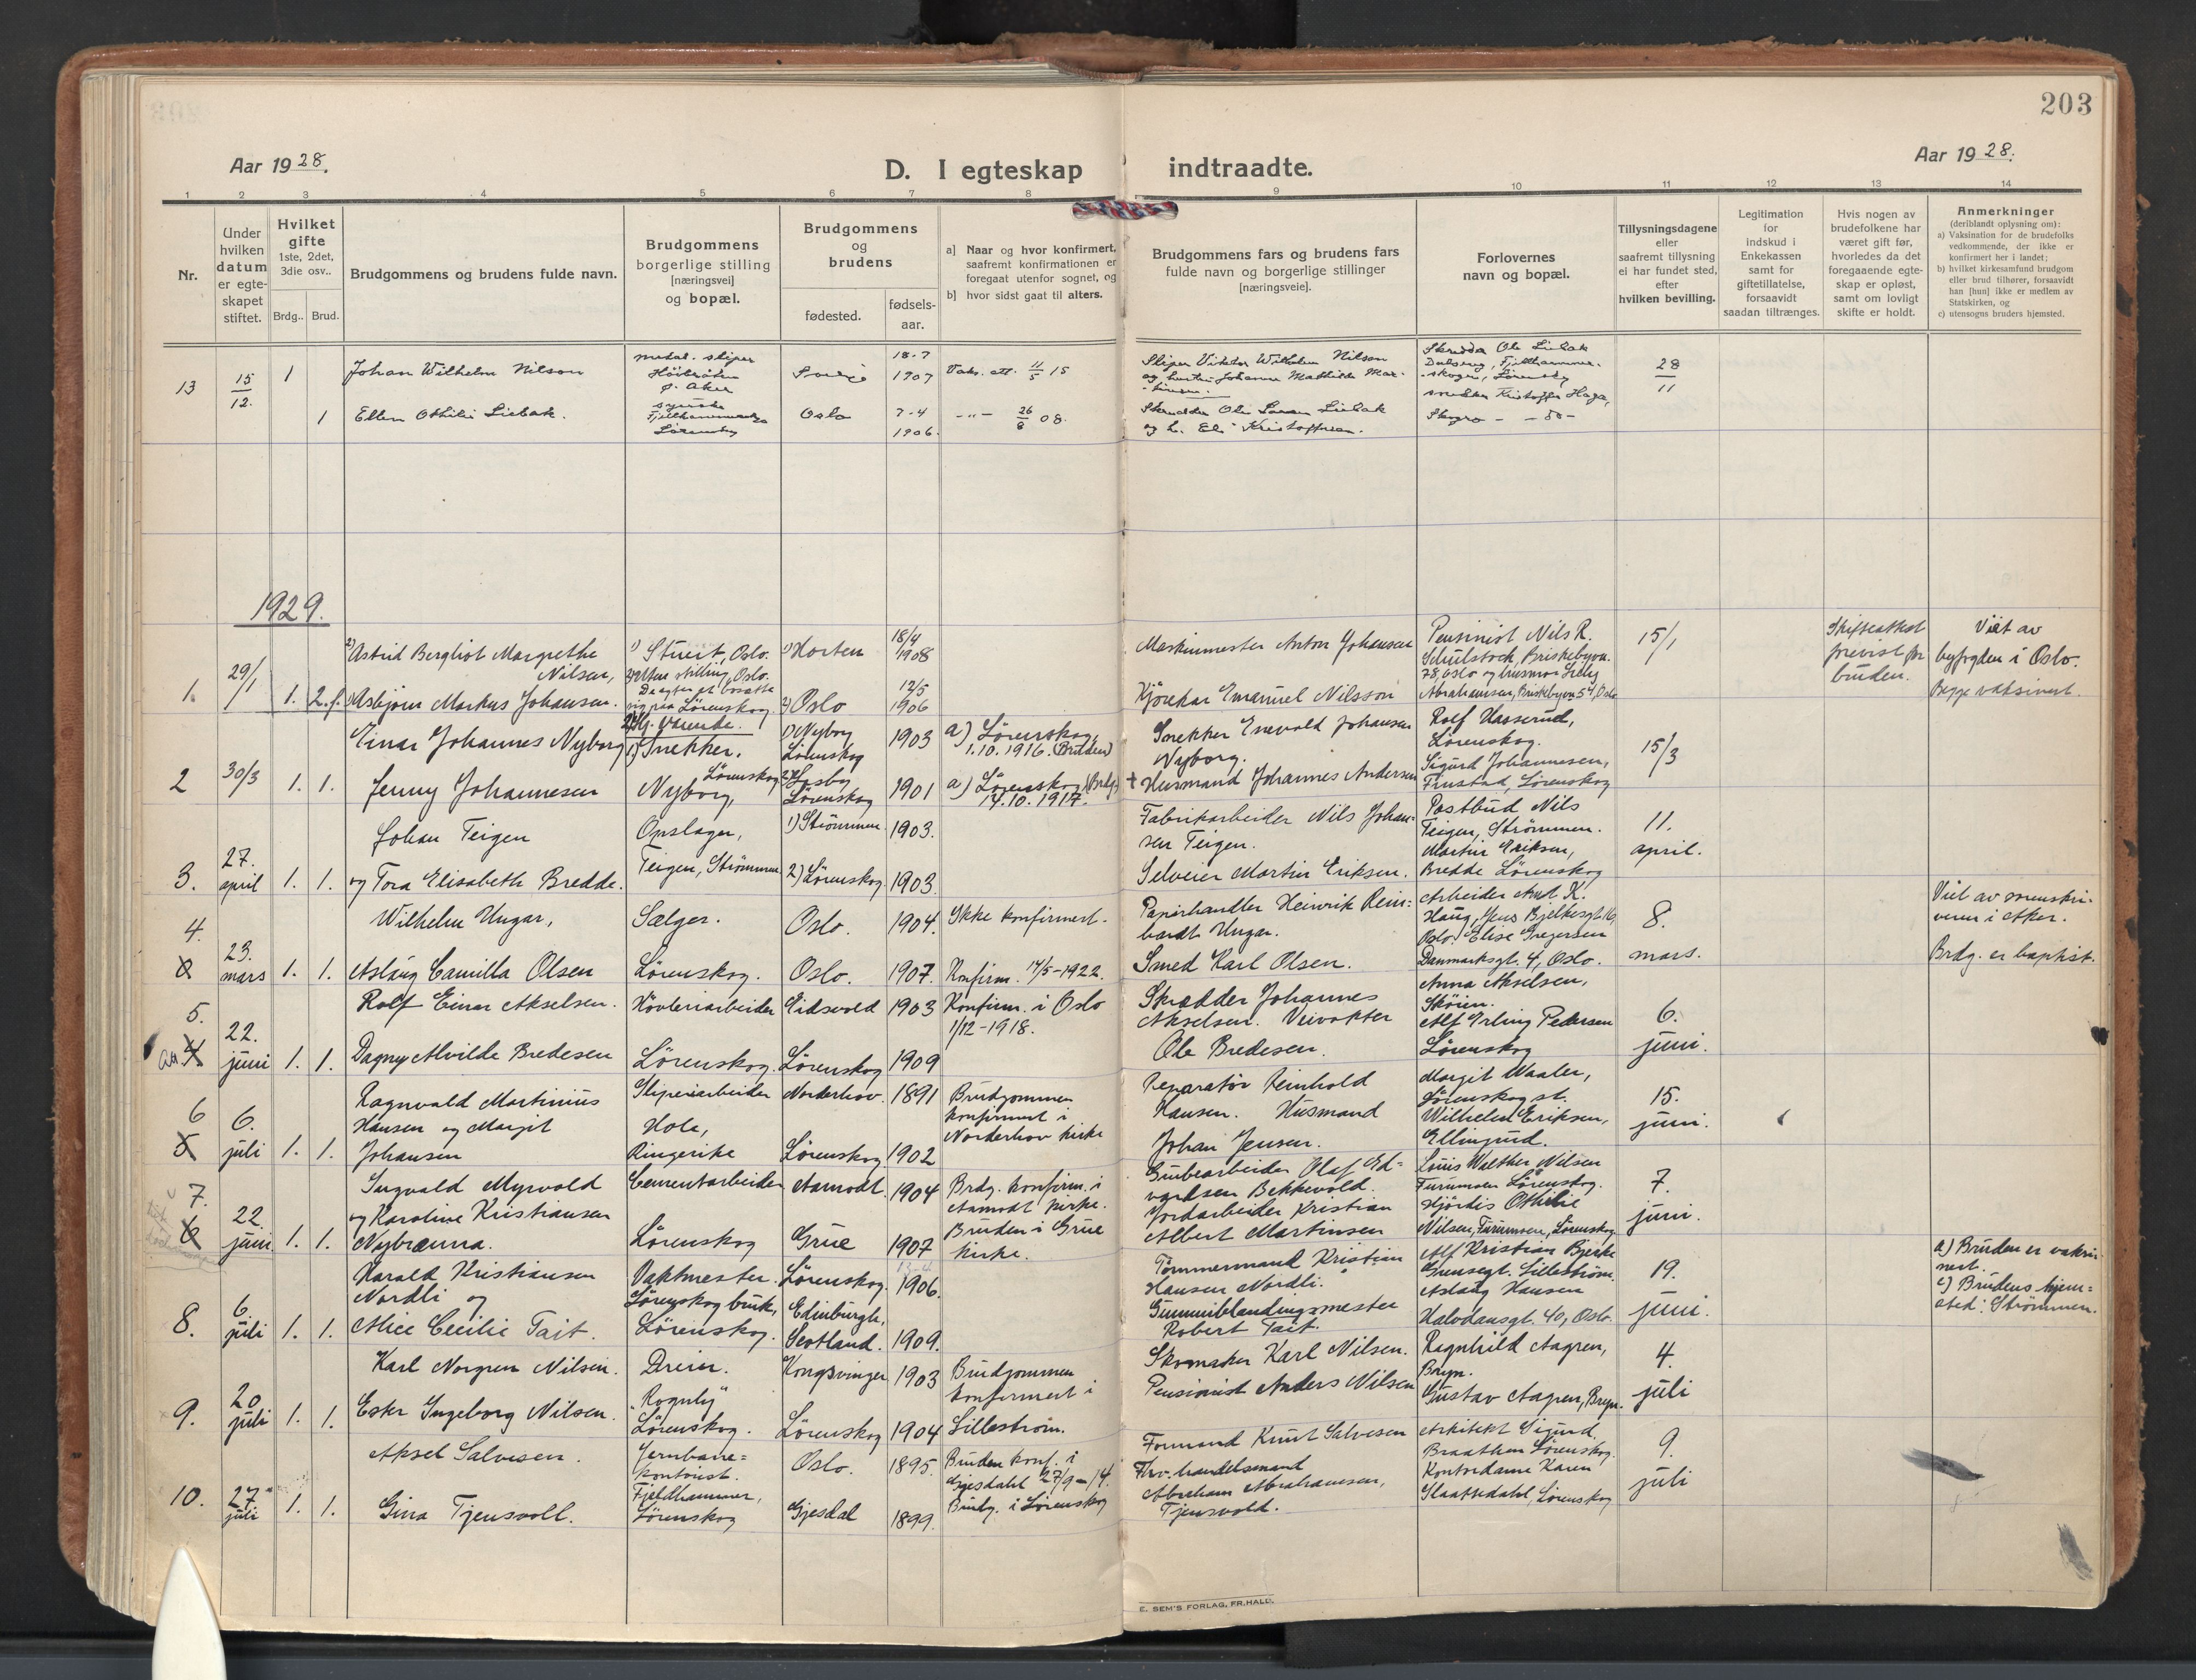 203
Aar 1928.
D. I egteskap indtraadte.
Aar 1928.
1 2 3 4 5 6 7 8 9 10 11 12 13 14
Nr.
Under hvilken datum er egte-skapet stiftet.
Hvilket gifte 1ste, 2det, 3die osv..
Brdg.. Brud.
Brudgommens og brudens fulde navn.
Brudgommens borgerlige stilling [næringsvei] og bopæl.
Brudgommens og brudens
fødested.
fødsels-aar.
a] Naar og hvor konfirmert, saafremt konfirmationen er foregaat utenfor sognet, og
b] hvor sidst gaat til alters.
Brudgommens fars og brudens fars fulde navn og borgerlige stillinger [næringsveie].
Forlovernes navn og bopæl.
Tillysningsdagene eller saafremt tillysning ei har fundet sted, efter hvilken bevilling.
Legitimation for indskud i Enkekassen samt for giftetillatelse, forsaavidt saadan tiltrænges.
Hvis nogen av brudefolkene har været gift før, hvorledes da det foregaaende egte-skap er opløst, samt om lovligt skifte er holdt.
Anmerkninger (deriblandt oplysning om):
a) Vaksination for de brudefolks vedkommende, der ikke er konfirmert her i landet;
b) hvilket kirkesamfund brudgom eller brud tilhører, forsaavidt han [hun] ikke er medlem av Statskirken, og
c) utensogns bruders hjemsted.
13 15/12. 1 Johan Wilhelm Nilson
Ø. Aker
18-7 1907
Vaks. att. 11/5 15
Wilhelm Nilson
28/11
1 Ellen Othilie Liebak.
Oslo 7-4 1906.
-"- 26/8 08.
1929.
1. 29/1 1. 2.f.
2) Astrid Bergliot Margrethe Nilsen,
1) Asbjørn Markus Johansen.
1) Horten 18/4 1908
2) Oslo 12/5 1906
Maskinmester Anton Johansen
Kjørekar Emanuel Nilsson
Pensinist Nils R.
Schulstock, Briskebyvn.
78, Oslo og husmor Lilly
Abrahamsen, Briskebyvn 54, Oslo
15/1
Skifteattest
previst for
bruden.
Viet av
byfogden i Oslo.
Begge vaksinert.
2 30/3 1. 1.
Einar Johannes Nyborg
Jenny Johannesen
1) Snekker.
Nyborg, Lørenskog
1) Nyborg Lørenskog 1903
2) Hasby Lørenskog 1901
a) Lørenskog, 1.10.1916. (Bruden)
a) Lørenskog (Brdg.) 14.10.1917.
Snekker Enevold Johansen
Nyborg.
† Husmand Johannes Andersen
Rolf Hasserud,
Lørenskog.
Sigurd Johannesen,
Finstad, Lørenskog
15/3
3. 27. april 1. 1.
Johan Teigen
og Tora Elisabeth Bredde.
Opslager,
Teigen, Strømmen
1) Strømmen. 1903.
2) Lørenskog. 1903.
Fabrikarbeider Nils Johan-
sen Teigen.
Selveier Martin Eriksen.
Postbud Nils
Teigen, Strømmen.
Martin Eriksen,
Bredde Lørenskog
11. april.
4. 23. mars 1. 1.
Wilhelm Ungar,
Aslaug Camilla Olsen
Sælger.
Lørenskog.
Oslo. 1904. Ikke konfirmert.
Oslo. 1907. Konfirm. 14/5-1922.
Papirhandler Heinrik Rein-
hardt Ungar.
Smed Karl Olsen.
Arbeider Axel K.
Haug, Jens Bjelkesgt. 16,
Oslo. Elise Gregersen
Danmarksgt. 4, Oslo.
8. mars.
Viet av sorenskri-
veren i Aker.
Brdg. er baptist.
5. 22. juni 1. 1.
Rolf Einar Akselsen.
Dagny Alvilde Bredesen
Høvleriarbeider
Lørenskog.
Eidsvold 1903 Konfirm. i Oslo 1/12-1918.
Lørenskog 1909
Skrædder Johannes
Akselsen. Veivokter
Ole Bredesen.
Anna Akselsen,
Skøien.
Alf Erling Pedersen
Lørenskog
6. juni.
6 6. juli 1. 1.
Ragnvald Martinius
Hansen og Margit
Johansen
Sliperiarbeider
Hole,
Ringerike
Norderhov. 1891
Lørenskog. 1902
Brudgommen
konfirmert i
Norderhov kirke
Reparatør Reinhold
Hansen. Husmand
Johan Jensen.
Margit Waaler,
Lørenskog st.
Wilhelm Eriksen,
Ellingrud.
15. juni.
7. 22. juni 1. 1.
Ingvald Myrvold
og Karoline Kristiansen
Nybrænna.
Cementarbeider
Lørenskog
Aamodt. 1904
Grue 1907
Brdg. konfirm. i
Aamodt kirke.
Bruden i Grue
kirke.
Grubearbeider Olaf Ed-
vardsen Bekkevold.
Jordarbeider Kristian
Albert Martinsen
Louis Walther Nilsen
Furumoen Lørenskog.
Hjørdis Othilie
Nilsen, Furumoen, Lørenskog.
7. juni.
8. 6. juli 1. 1.
Harald Kristiansen
Nordli og
Alice Cecilie Tait.
Vaktmester.
Lørenskog bruk,
Lørenskog.
Lørenskog. 1906.
Edinburgh,
Scotland. 1909.
Tømmermand Kristian
Hansen Nordli.
Gummiblandingsmester
Robert Tait.
Alf Kristian Bjerke
Grensegt. Lillestrøm.
Aslaug Hansen
Halvdansgt. 40, Oslo.
19. juni.
a) Bruden er vaksi-
nert.
c) Brudens hjem-
sted: Strømmen.
9. 20. juli 1. 1.
Karl Norgren Nilsen.
Ester Ingeborg Nilsen.
Dreier.
"Rognly"
Lørenskog.
Kongsvinger 1903
Lørenskog 1904
Brudgommen
konfirmert i
Lillestrøm.
Skomaker Karl Nilsen.
Pensionist Anders Nilsen
Ragnhild Aagren,
Bryn.
Gustav Aagren, Bryn.
4. juli
10. 27. juli 1. 1.
Aksel Salvesen.
Gina Tjensvoll.
Jernbane-
kontorist.
Fjeldhammer,
Lørenskog
Oslo. 1895.
Gjesdal 1899.
Bruden konf. i
Gjesdahl 27/9-14.
Brudg. i Lørenskog
Formand Knut Salvesen
Fhv. handelsmand
Abraham Abrahamsen,
Tjensvold.
Arkitekt Sigurd
Braathen Lørenskog.
Kontordame Karen
Slaattedahl, Lørenskog
9. juli
E. SEM'S FORLAG, FR.HALD.